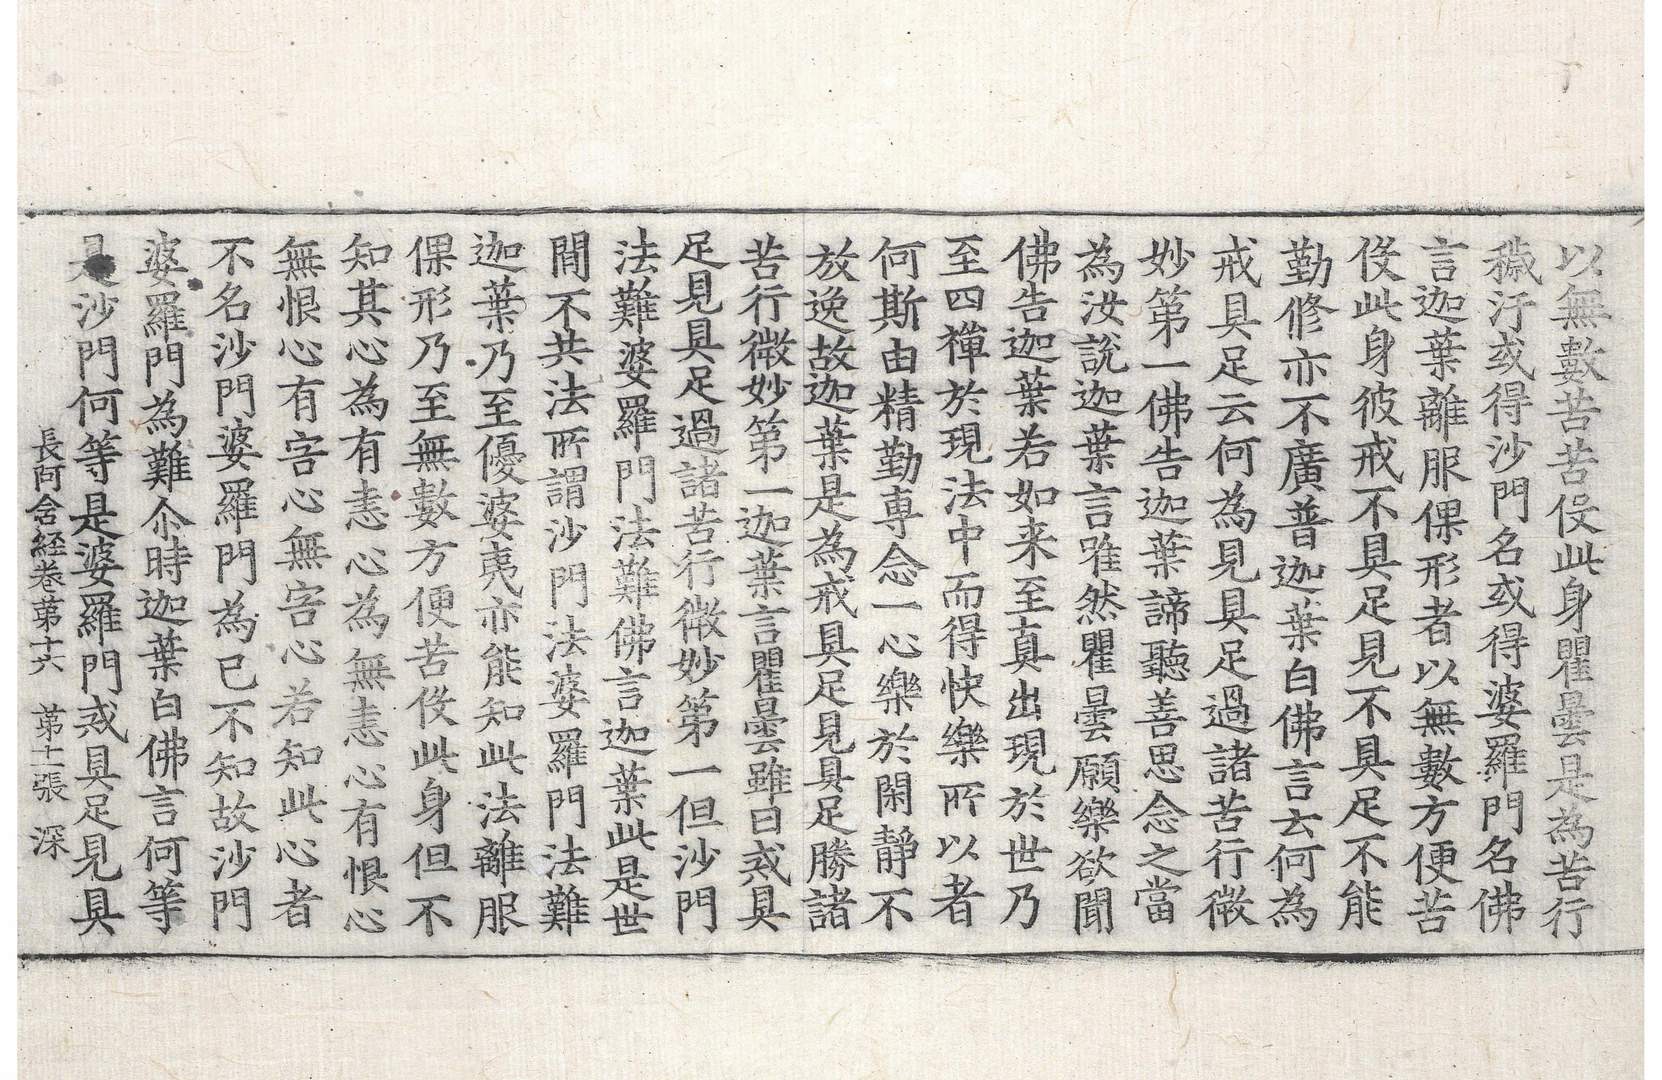 以無數苦苦伇此身瞿曇是為苦行
穢汙或得沙門名或得婆羅門名佛
言迦葉離服倮形者以無數方便苦
伇此身彼戒不具足見不具足不能
勤修亦不廣普迦葉白佛言云何為
戒具足云何為見具足過諸苦行微
妙第一佛告迦葉諦聽善思念之當
為汝說迦葉言唯然瞿曇願樂欲聞
佛告迦葉若如来至真出現於世乃
至四禪於現法中而得快樂所以者
何斯由精勤専念一心樂於閑靜不
放逸故迦葉是為戒具足見具足勝諸
苦行微妙第一迦葉言瞿曇雖曰戒具
足見具足過諸苦行微妙第一但沙門
法難婆羅門法難佛言迦葉此是世
間不共法所謂沙門法婆羅門法難
迦葉乃至優婆夷亦能知此法離服
倮形乃至無數方便苦伇此身但不
知其心為有恚心為無恚心有恨心
無恨心有害心無害心若知此心者
不名沙門婆羅門為已不知故沙門
婆羅門為難尒時迦葉白佛言何等
是沙門何等是婆羅門戒具足見具
長阿含経卷第十六 第十一張 深